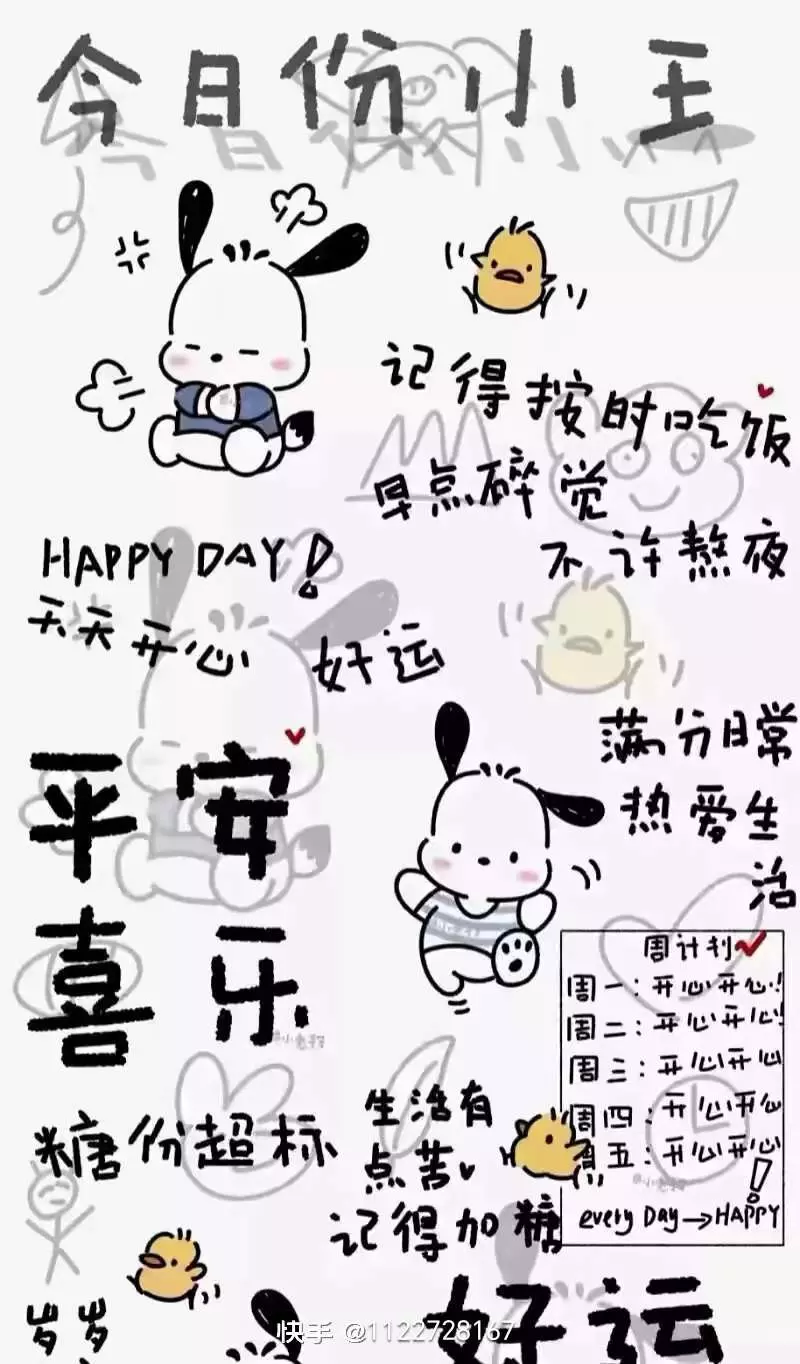 今日份小王
记得按时吃饭
早点碎觉
不许熬夜
HAPPY DAY!
天天开心 好运
平安
喜乐
满分日常
热爱生
活
周计划
周一:开心开心!
周二:开心开心!
周三:开心开心
周四:开心开心
周五:开心开心!
every Day→HAPPY
糖份超标
生活有
点苦
记得加糖
岁岁
好运
快手 @1122728167